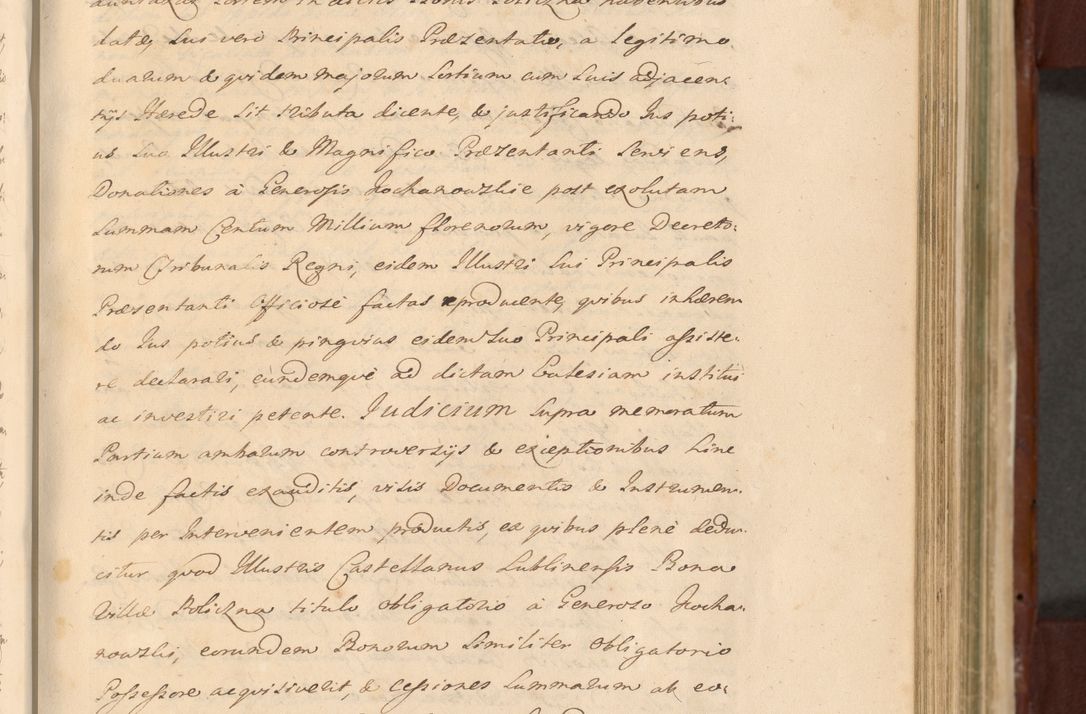 datæ, sui verò Principalis Præzentatio, a legitimo
duarum & qvidem majorum Sortium cum suis adjacen:
tijs Hærede sit tributa dicente, & justificando Jus poti:
us suo Illustri & Magnifico Præzentanti serviens,
Donationes à Generosis Kochanowskie post exolutam
summam Centum Millium florenorum, vigore Decreto:
rum Tribunalis Regni, eidem Illustri sui Principalis
Præsentanti officiosè factas reproducente, qvibus inhæren
do Jus potius & pingvius eidem suo Principali assiste:
re declarari, eundemqvè ad dictam Ecclesiam institui
ac investiri petente. Judicium supra memoratum
Partium ambarum controversijs & exceptionibus hinc
inde factis exauditis, visis Documentis & Instrumen:
tis per Intervenientem productis, ex qvibus plenè dedu:
citur qvod Illustris Castellanus Lublinensis Bona
Villæ Policzna titulo obligatorio à Generoso Kocha:
nowski, eorundem Bonorum similiter obligatorio
Possessore acqvisiverit, & cessiones summarum ab eo: